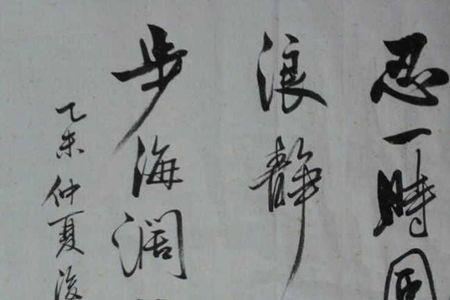 忍一時風
浪靜
步海濶
乙未仲夏